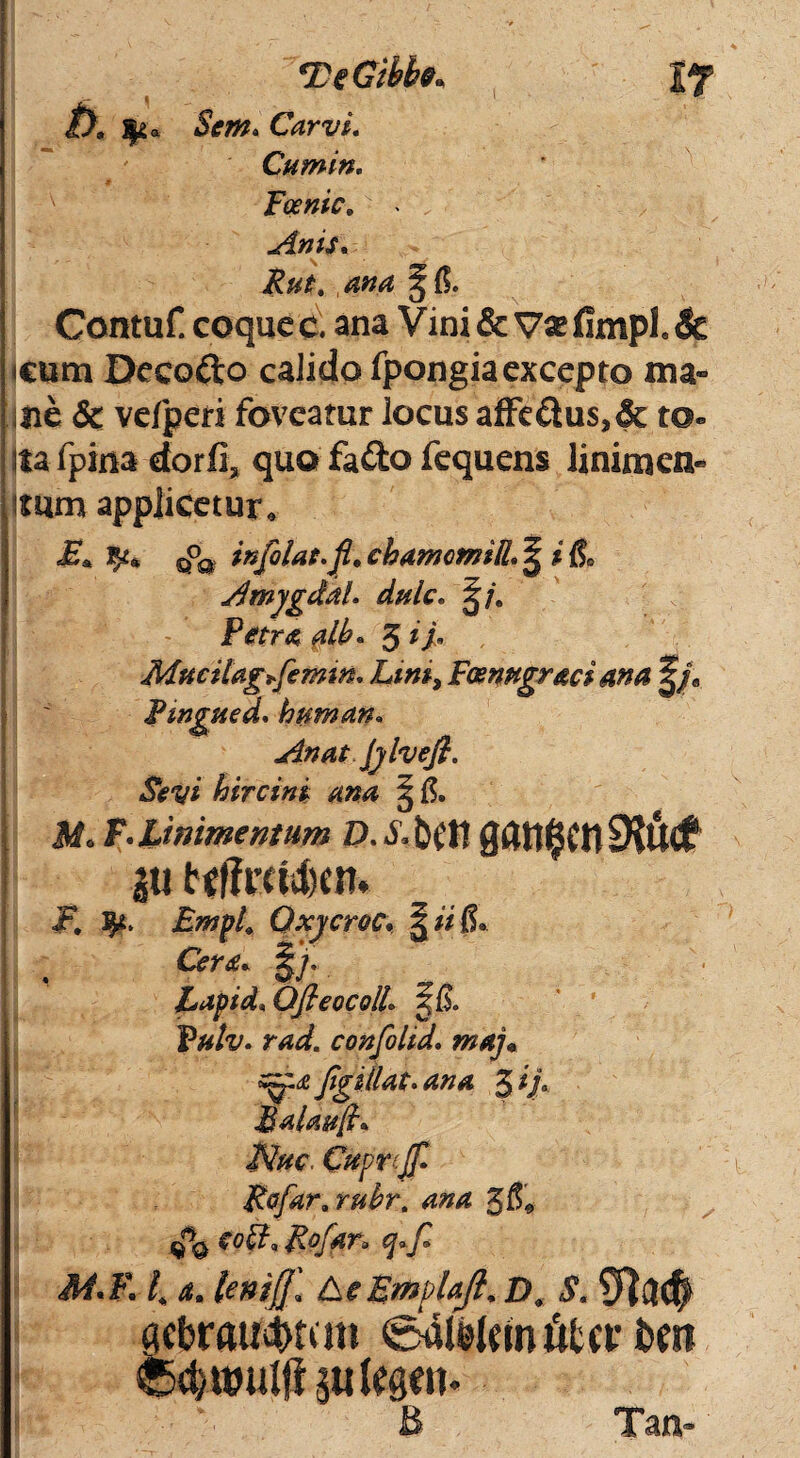 De Gibbo. 17
D. ℞. Sem. Carvi.
Cumin.
Fœnic.
Anis.
Rut. ana ℥ß.
Contuſ. coque c. ana Vini & ▽æ ſimpl. &
cum Decocto calido ſpongia excepto ma-
ne & veſperi foveatur locus affectus, & to-
ta ſpina dorſi, quo facto ſequens linimen-
tum applicetur.
E. ℞. infolat. fl. chamomill. ℥iß.
Amygdal. dulc. ℥j.
Petræ alb. ʒij.
Mucilag. ſemin. Lini, Fœnugræci ana ℥j.
Pingued. human.
Anat. ſylveſt.
Sevi hircini ana ℥ß.
M. F. Linimentum D. S. den gantzen Rück
zu beſtreichen.
F. ℞. Empl. Oxycroc. ℥iiß.
Ceræ. ℥j.
Lapid. Oſteocoll. ℥ß.
Pulv. rad. conſolid. maj.
ſigillat. ana ʒij.
Balauſt.
Nuc. Cupreſſ.
Roſar. rubr. ana ʒß.
coct. Roſar. q. ſ.
M. F. l. a. leniſſ. De Emplaſt. D. S. Nach
gebrauchtem Sälblein über den
Schwulſt zu legen.
B Tan-